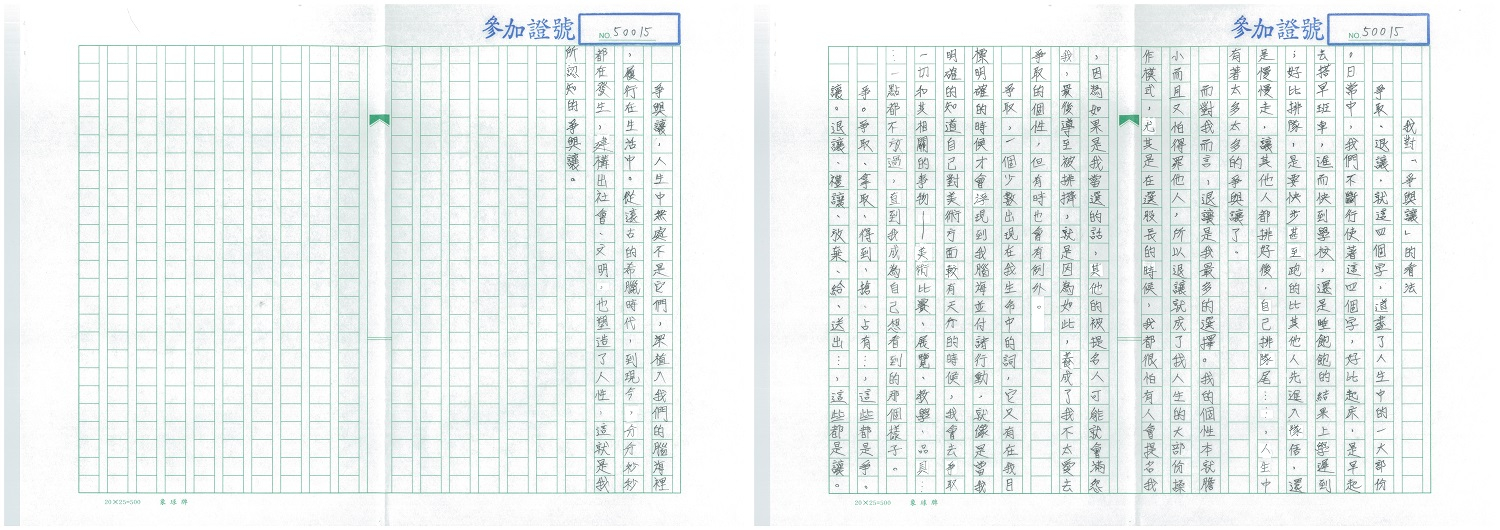 參加證號
NO. 50015
我對「爭與讓」的看法
爭取、退讓,就這四個字,道盡了人生中的一大部份
。日常中,我們不斷行使著這四個字,好比起床,是早起
去搭早班車,進而快到學校,還是睡飽飽的結果上學遲到
;好比排隊,是要快步甚至跑的比其他人先進入隊伍,還
是慢慢走,讓其他人都排好後,自己排隊尾……,人生中
有著太多太多的爭與讓了。
而對我而言,退讓是我最多的選擇。我的個性本就膽
小而且又怕得罪他人,所以退讓就成了我人生的大部份操
作模式,尤其是在選股長的時候,我都很怕有人會提名我
,因為如果是我當選的話,其他的被提名人可能就會滿怨
我,最後導至被排擠,就是因為如此,養成了我不太愛去
爭取的個性,但有時也會有例外。
爭取,一個少數出現在我生命中的詞,它又有在我目
標明確的時候才會浮現到我腦海並付諸行動,就像是當我
明確的知道自己對美術方面較有天分的時候,我會去爭取
一切和其相關的事物——美術比賽、展覽、教學、品具…
…一點都不放過,直到我成為自己想看到的那個樣子。
爭。爭取、拿取、得到、搶、占有…,這些都是爭。
讓。退讓、禮讓、放棄、給、送出…,這些都是讓。
20×25=500 象球牌
參加證號
NO. 50015
爭與讓,人生中無處不是它們,深植入我們的腦海裡
,履行在生活中。從遠古的希臘時代,到現今,分分秒秒
都在發生,建構出社會、文明,也塑造了人性,這就是我
所認知的爭與讓。
20×25=500 象球牌